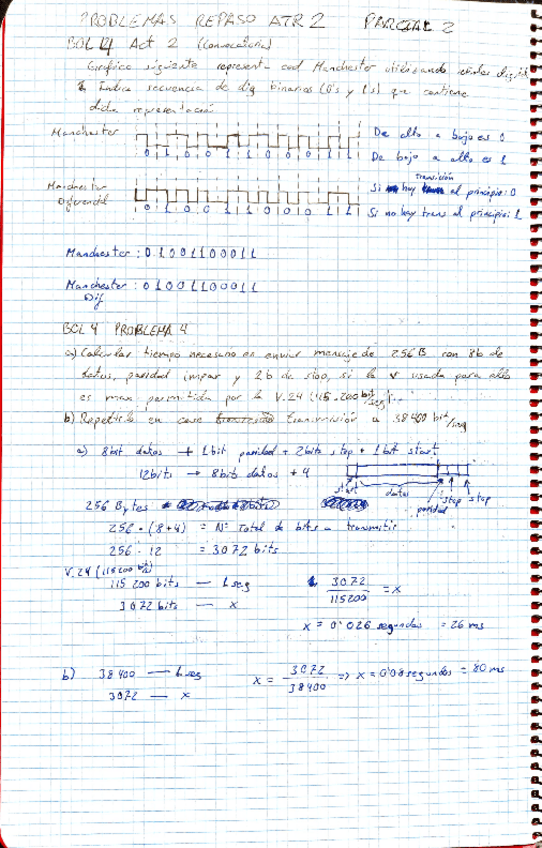 PROBLEMAS REPASO ATR 2 PARCIAL 2
BOL 4 Act 2 (Convocatoria)
Gráfico siguiente representa cod Manchester utilizando señales digital
Indica secuencia de dig binarios (0's y 1s) que contiene
dicha representación
Manchester
0 1 0 0 1 1 0 0 0 1 1
De alto a bajo es 0
De bajo a alto es 1
Manchester
Diferencial
0 1 0 0 1 1 0 0 0 1 1
Si hay transición al principio: 0
Si no hay trans al principio: 1
Manchester: 01001100011
Manchester: 01001100011
Dif
BOL 4 PROBLEMA 4
a) Calcular tiempo necesario en enviar mensaje de 256B con 8b de
datos, paridad impar y 2b de stop, si la v usada para ello
es max permitida por la V.24 (115.200 bit/seg).
b) Repetirlo en caso transmisión a 38400 bit/seg
a) 8bit datos + 1bit paridad + 2bits stop + 1bit start
12bits → 8bits datos + 4
start datos paridad stop stop
256 Bytes
256 · (8+4) = Nº Total de bits a transmitir
256 · 12 = 3072 bits
V.24 (115200 bit/s)
115 200 bits — 1 seg
3072 bits — x
3072/115200 = x
x = 0'026 segundos = 26 ms
b) 38400 — 1 seg
3072 — x
x = 3072/38400 => x = 0'08 segundos = 80 ms